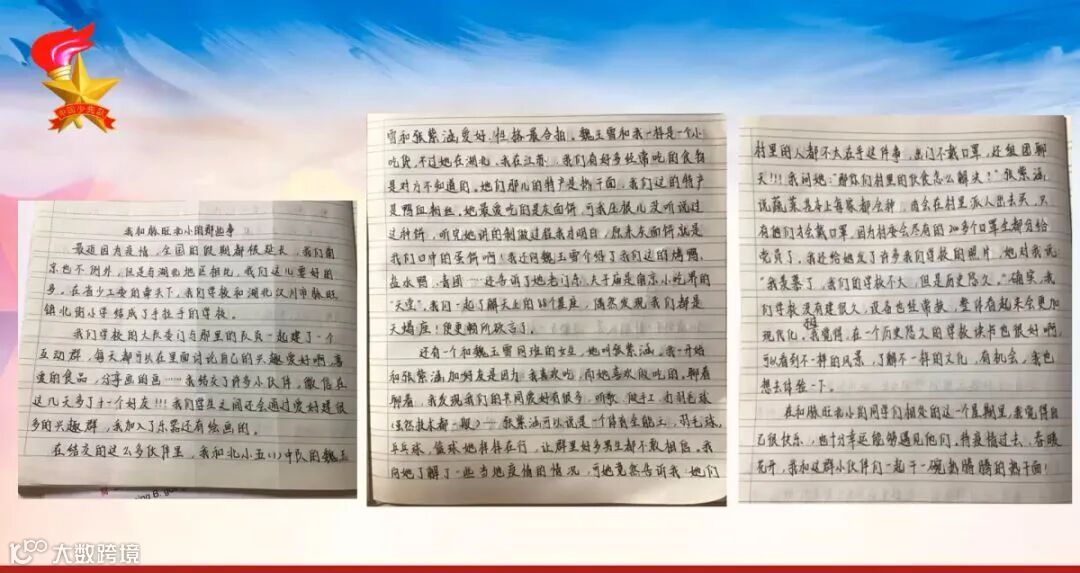 中国少先队
我和脉旺北小的那些事
最近因为疫情，全国的假期都很延长，我们南
京也不例外，但是与湖北地区相比，我们这儿要好的
多。在省少工委的牵头下，我们学校和湖北汉川市脉旺
镇北街小学结成了手拉手的学校。
我们学校的大队委门与那里的队员一起建了一个
互动群，每天都可以在里面讨论自己的兴趣爱好啊，喜
爱的食品，分享画的画……我结交了许多小伙伴，微信在
这几天多了十一个好友!!!我们学生之间还会通过爱好建很
多的兴趣群，我加入了乐器还有绘画的。
在结交的这么多伙伴里，我和北小五(1)中队的魏玉
雪和张紫涵爱好、性格最合拍。魏玉雪和我一样是一个小
吃货，不过她在湖北，我在江苏，我们有好多经常吃的食物
是对方不知道的。她们那儿的特产是热干面，我们这的特产
是鸭血粉丝。她最爱吃的是灰面饼，可我压根儿没听说过
这种饼，听完她讲的制做过程我才明白，原来灰面饼就是
我们口中的蛋饼啊!我还向魏玉雪介绍了我们这的烤鸭、
盐水鸭、青团……还告诉了她老门东、夫子庙是南京小吃界的
“天堂”。我们一起了解天上的88个星座，偶然发现我们都是
天蝎座!便更畅所欲言了。
还有一个和魏玉雪同班的女生，她叫张紫涵。我一开始
和张紫涵加好友是因为我喜欢吃，而她喜欢做吃的。聊着
聊着，我发现我们的共同爱好有很多，听歌、做手工、打羽毛球
(虽然技术都一般)……张紫涵可以说是一个体育全能王，羽毛球、
乒乓球、篮球她样样在行，让群里好多男生都不敢相信。我
向她了解了一些当地疫情的情况，可她竟然告诉我：她们
村里的人都不太在乎这件事，出门不戴口罩，还组团聊
天!!!我问她：“那你们村里的饮食怎么解决?”张紫涵
说蔬菜基本上每家都会种，肉会在村里派人出去买，只
有他们才会戴口罩，因为村委会尽有的20多个口罩全都分给
党员了。我还给她发了许多我们学校的照片，她对我说：
“我羡慕了，我们的学校不大，但是历史悠久。”确实，我
们学校没有建很久，设备也经常换，整体看起来会更加
现代化。我倒觉得，在一个历史悠久的学校读书也很好啊，
可以看到不一样的风景，了解不一样的文化，有机会，我也
想去体验一下。
在和脉旺北小的同学们相处的这一个星期里，我觉得自
己很快乐，也十分幸运能够遇见他们。待疫情过去、春暖
花开，我和这群小伙伴们一起干一碗热腾腾的热干面!
大数跨境